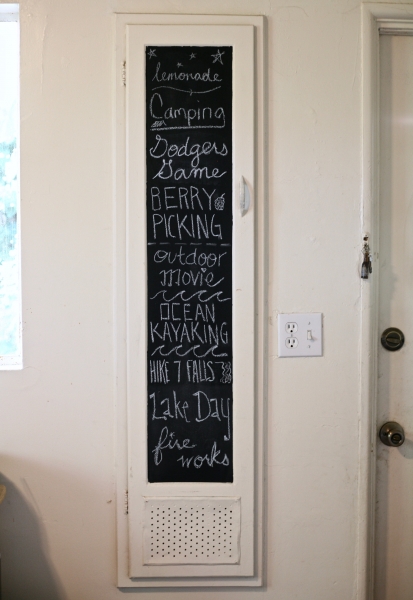 lemonade
Camping
Dodgers
Game
BERRY
PICKING
outdoor
movie
OCEAN
KAYAKING
HIKE 7 FALLS
Lake Day
fire
works